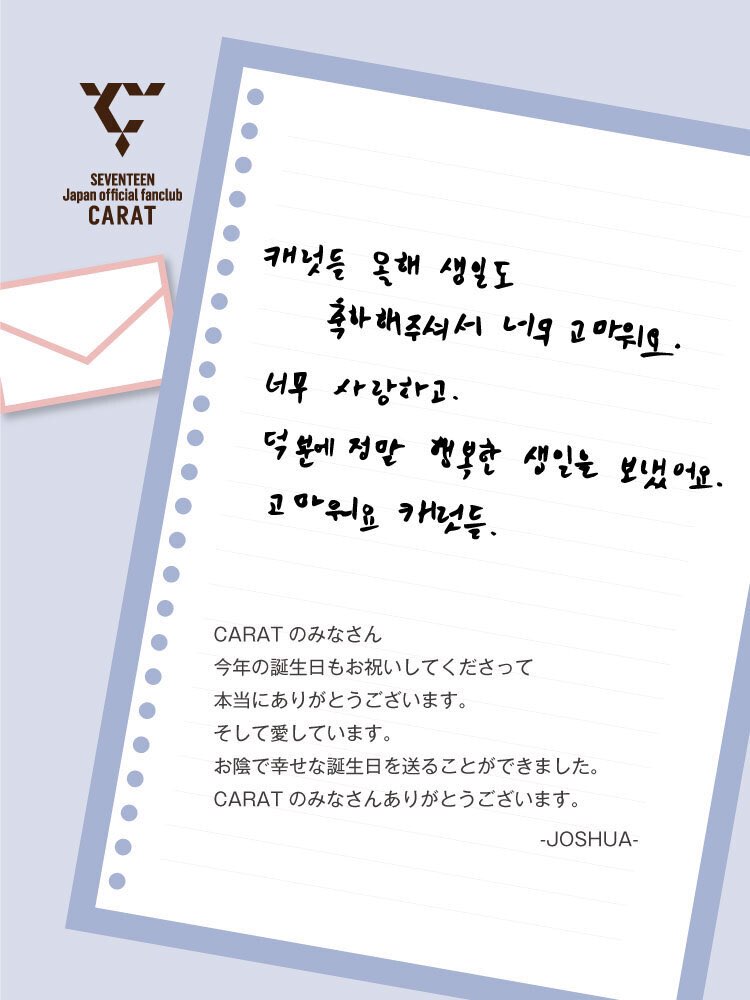 SEVENTEEN
Japan official fanclub
CARAT
캐럿들 올해 생일도
축하해주셔서 너무 고마워요.
너무 사랑하고.
덕분에 정말 행복한 생일을 보냈어요.
고마워요 캐럿들.
CARAT のみなさん
今年の誕生日もお祝いしてくださって
本当にありがとうございます。
そして愛しています。
お陰で幸せな誕生日を送ることができました。
CARAT のみなさんありがとうございます。
-JOSHUA-